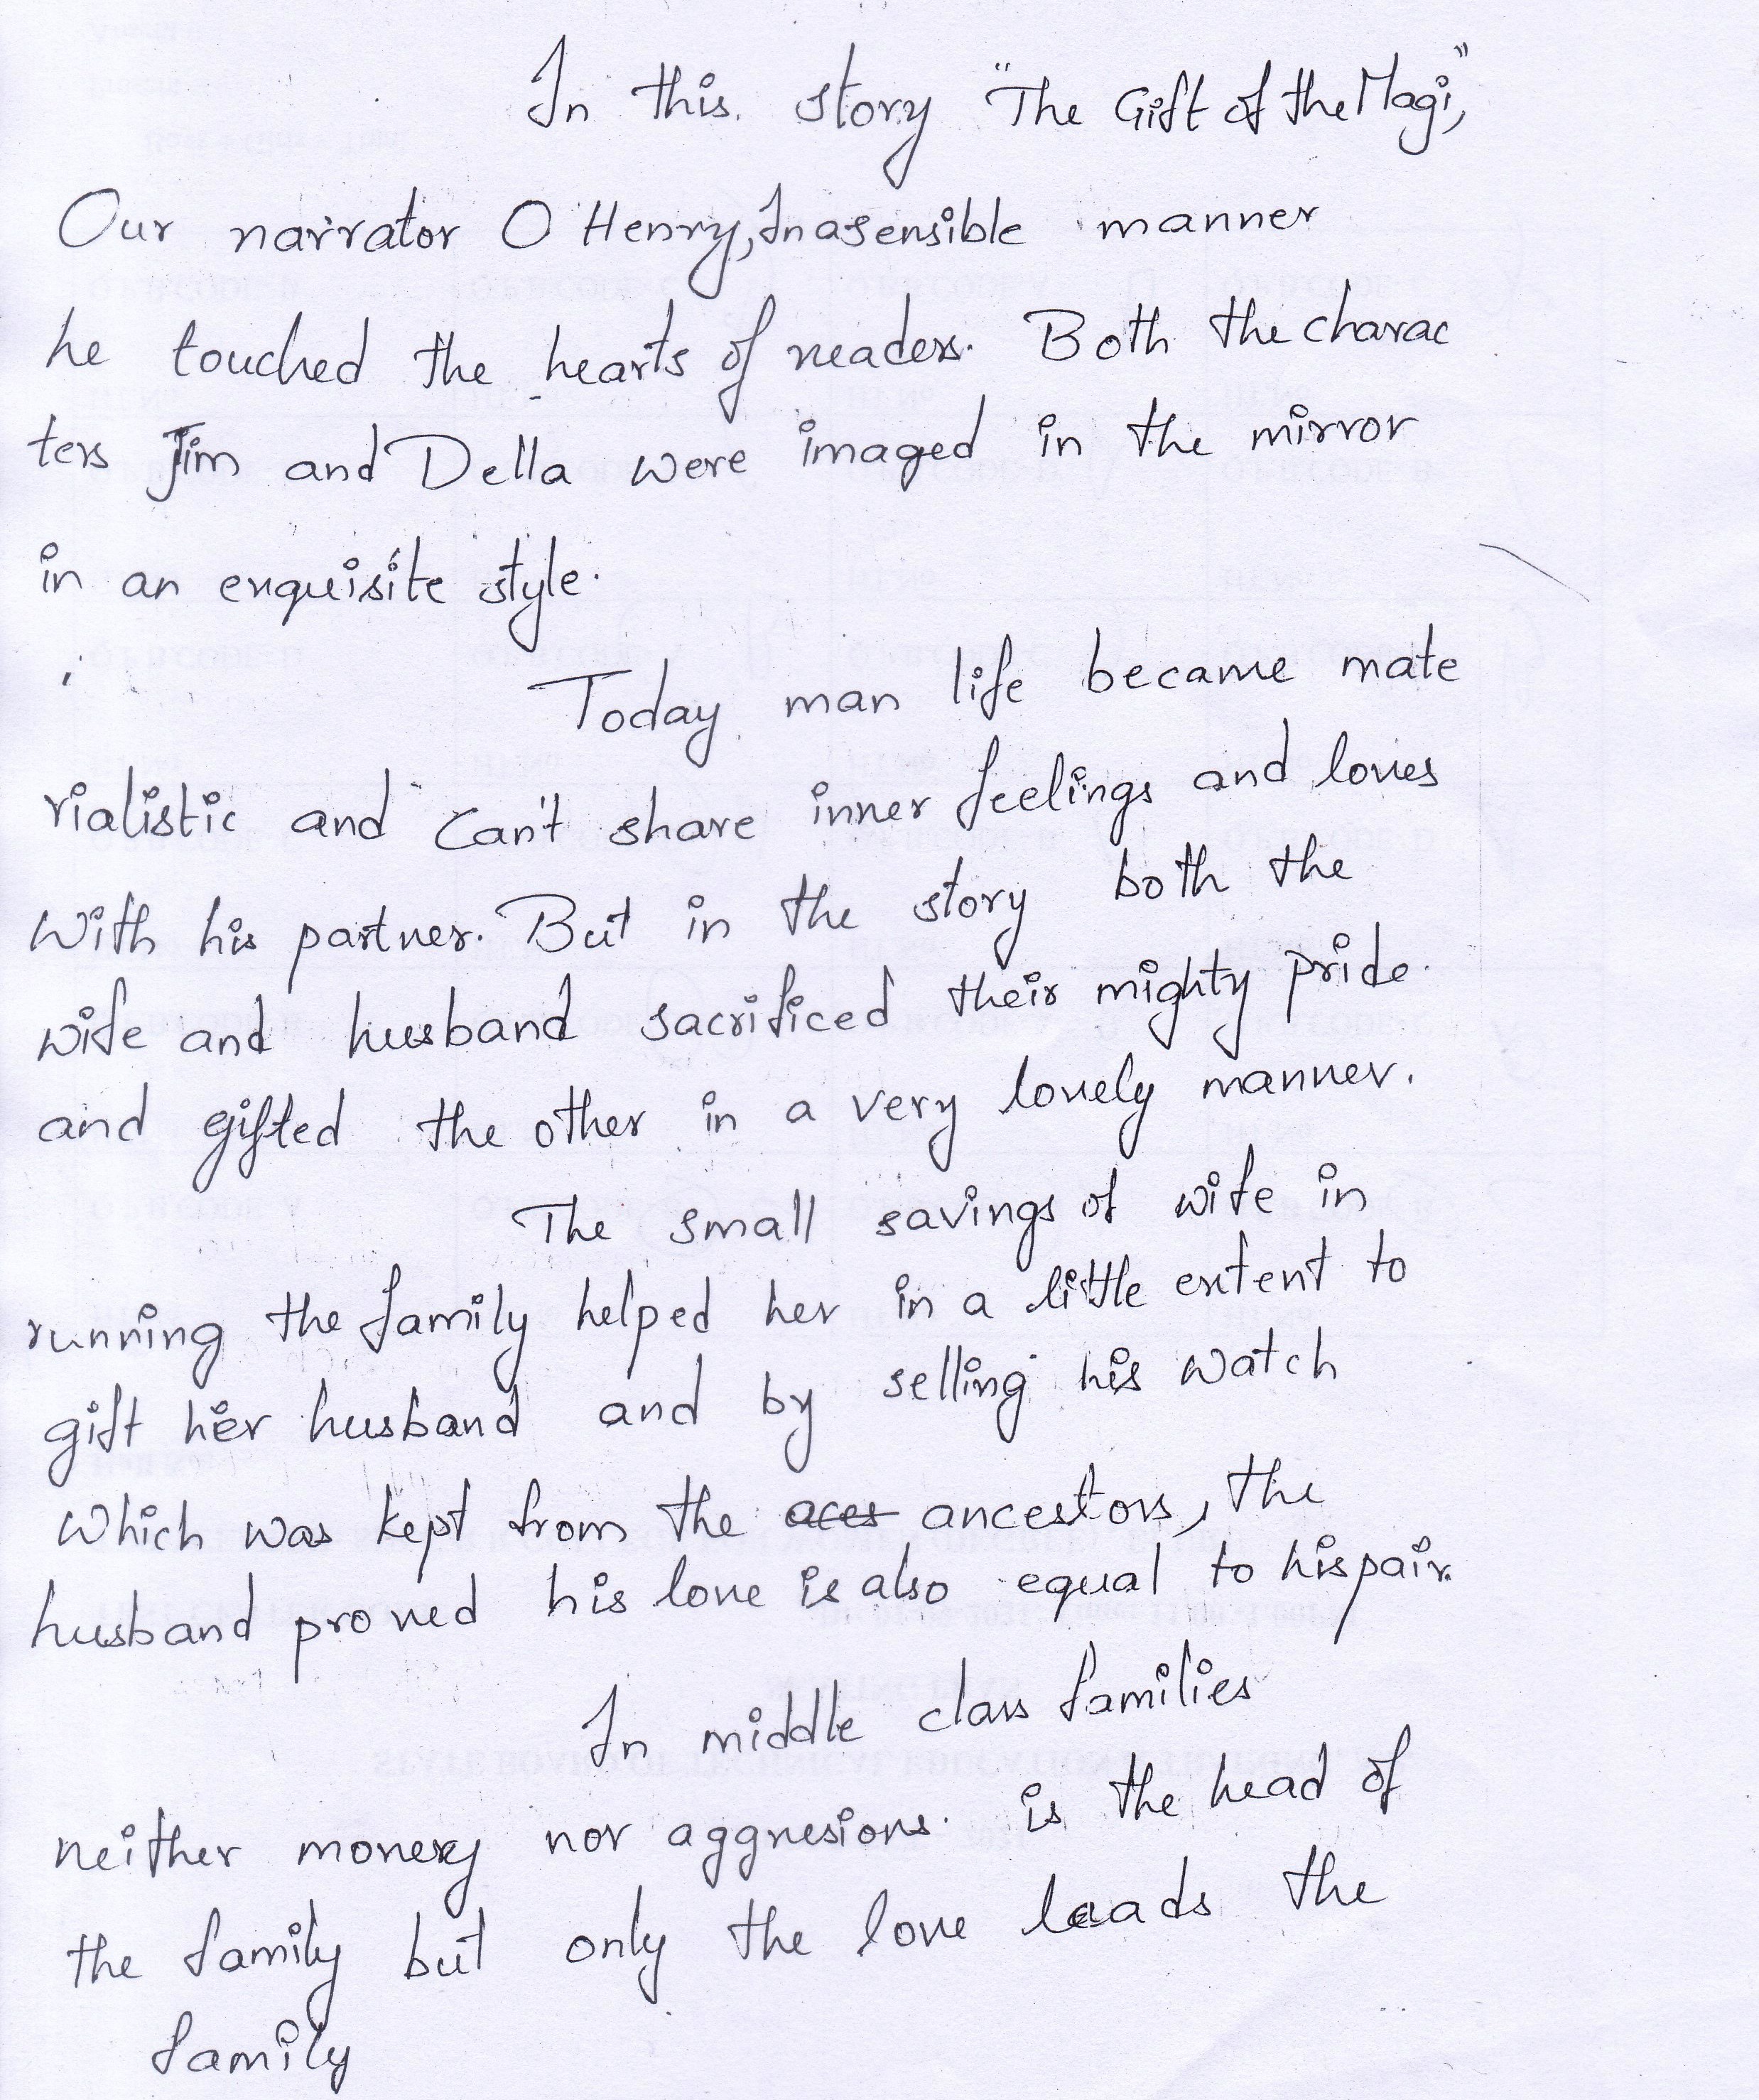 In this. story "The Gift of the Magi,"
Our narrator O Henry, In a sensible manner
he touched the hearts of readers. Both the charac
ters Jim and Della were imaged in the mirror
in an exquisite style.
Today man life became mate
rialistic and can't share inner feelings and loves
With his partner. But in the story both the
wife and husband sacrificed their mighty pride.
and gifted the other in a very lovely manner.
The small savings of wife in
running the family helped her in a little extent to
gift her husband and by selling his watch
Which was kept from the aces ancestors, the
husband proved his love is also equal to his pair.
In middle class families
neither money nor aggresions. is the head of
the family but only the love leads the
family